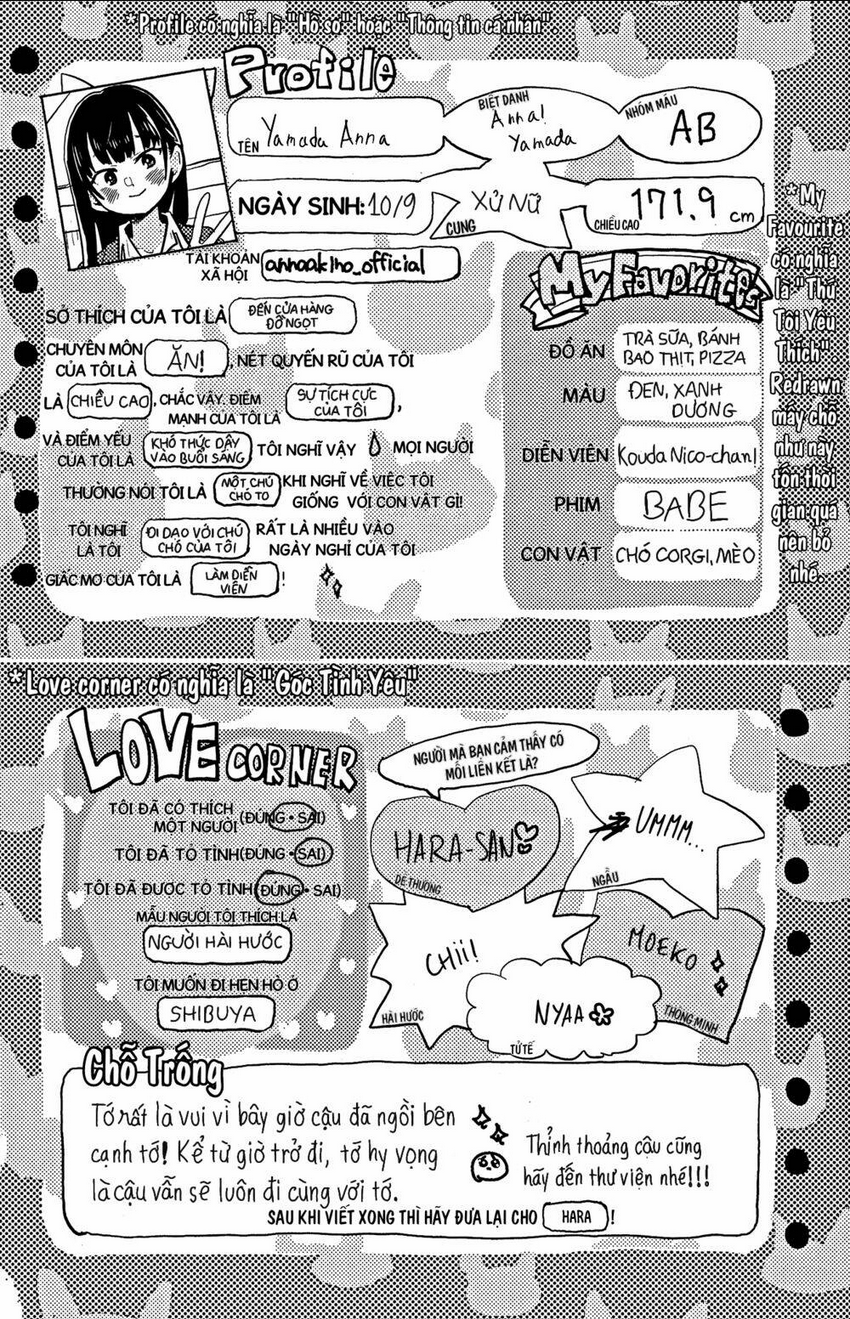 *Profile có nghĩa là "Hồ sơ" hoặc "Thông tin cá nhân".
Profile
TÊN Yamada Anna
BIỆT DANH
Anna!
Yamada
NHÓM MÁU
AB
NGÀY SINH: 10/9
XỬ NỮ
CUNG
171.9 cm
CHIỀU CAO
TÀI KHOẢN
XÃ HỘI
annaakino_official
SỞ THÍCH CỦA TÔI LÀ ĐẾN CỬA HÀNG
ĐỒ NGỌT
CHUYÊN MÔN
CỦA TÔI LÀ ĂN!, NÉT QUYẾN RŨ CỦA TÔI
LÀ CHIỀU CAO, CHẮC VẬY. ĐIỂM
MẠNH CỦA TÔI LÀ SỰ TÍCH CỰC
CỦA TÔI,
VÀ ĐIỂM YẾU
CỦA TÔI LÀ KHÓ THỨC DẬY
VÀO BUỔI SÁNG, TÔI NGHĨ VẬY MỌI NGƯỜI
THƯỜNG NÓI TÔI LÀ MỘT CHÚ
CHÓ TO KHI NGHĨ VỀ VIỆC TÔI
GIỐNG VỚI CON VẬT GÌ!
TÔI NGHĨ
LÀ TÔI ĐI DẠO VỚI CHÚ
CHÓ CỦA TÔI RẤT LÀ NHIỀU VÀO
NGÀY NGHỈ CỦA TÔI
GIẤC MƠ CỦA TÔI LÀ LÀM DIỄN
VIÊN !
My Favorites
ĐỒ ĂN TRÀ SỮA, BÁNH
BAO THỊT, PIZZA
MÀU ĐEN, XANH
DƯƠNG
DIỄN VIÊN Kouda Nico-chan!
PHIM BABE
CON VẬT CHÓ CORGI, MÈO
*My
Favourite
có nghĩa
là "Thứ
Tôi Yêu
Thích".
Redrawn
mấy chỗ
như này
tốn thời
gian quá
nên bỏ
nhé.
*Love corner có nghĩa là "Góc Tình Yêu"
LOVE CORNER
TÔI ĐÃ CÓ THÍCH
MỘT NGƯỜI (ĐÚNG • SAI)
TÔI ĐÃ TỎ TÌNH (ĐÚNG • SAI)
TÔI ĐÃ ĐƯỢC TỎ TÌNH (ĐÚNG • SAI)
MẪU NGƯỜI TÔI THÍCH LÀ
NGƯỜI HÀI HƯỚC
TÔI MUỐN ĐI HẸN HÒ Ở
SHIBUYA
NGƯỜI MÀ BẠN CẢM THẤY CÓ
MỐI LIÊN KẾT LÀ?
HARA-SAN
DỄ THƯƠNG
UMMM...
NGẦU
CHII!
HÀI HƯỚC
MOEKO
THÔNG MINH
NYAA
TỬ TẾ
Chỗ Trống
Tớ rất là vui vì bây giờ cậu đã ngồi bên
cạnh tớ! Kể từ giờ trở đi, tớ hy vọng
là cậu vẫn sẽ luôn đi cùng với tớ.
Thỉnh thoảng cậu cũng
hãy đến thư viện nhé!!!
SAU KHI VIẾT XONG THÌ HÃY ĐƯA LẠI CHO HARA !